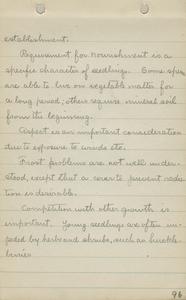 establishment.
Requirement for nourishment is a
specific character of seedling. Some spec.
are able to live on vegetable matter for
a long period; others require mineral soil
from the beginning.
Aspect is an important consideration
due to exposure to winds etc.
Frost problems are not well under-
stood, except that a cover to prevent radia-
tion is desirable.
Competition with other growth is
important. Young seedlings are often im-
peded by herbs and shrubs, such as huckle-
berries
96